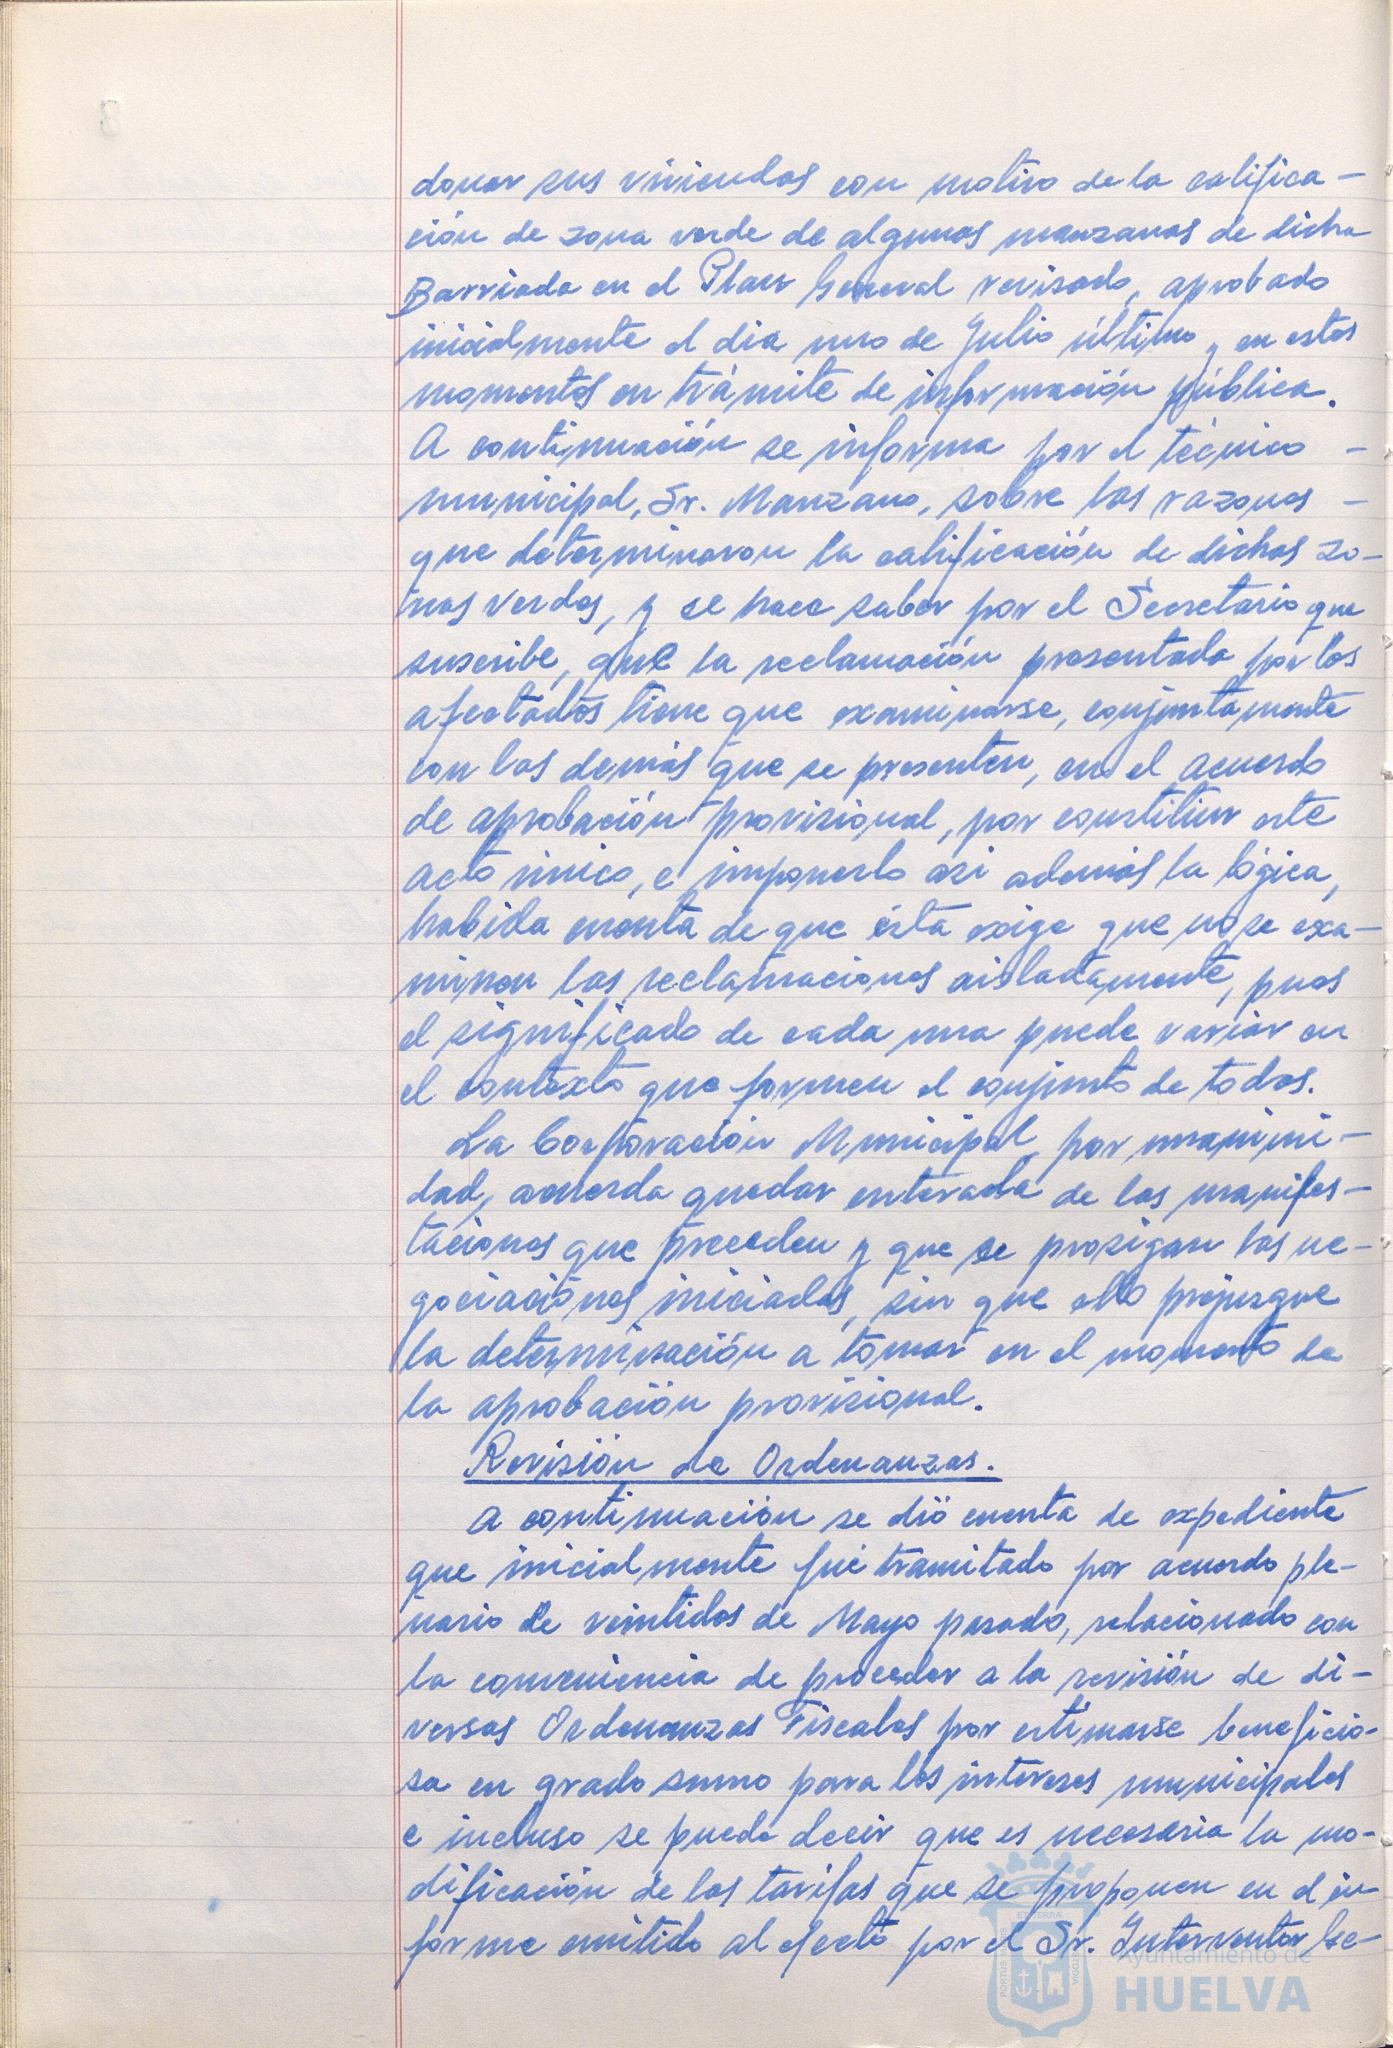 donar sus viviendas con motivo de la califica-
ción de zona verde de algunas manzanas de dicha
Barriada en el Plan General revisado, aprobado
inicialmente el dia uno de Julio último, y en estos
momentos en trámite de información pública.
A continuación se informa por el técnico -
municipal, Sr. Manzano, sobre las razones -
que determinaron la calificación de dichas zo-
nas verdes, y se hace saber por el Secretario que
suscribe, que la reclamación presentada por los
afectados tiene que examinarse, conjuntamente
con las demás que se presenten, en el acuerdo
de aprobación provisional, por constituir este
acto único, e imponerlo asi además la lógica,
habida cuenta de que ésta exige que no se exa-
minen las reclamaciones aisladamente, pues
el significado de cada una puede variar en
el contexto que formen el conjunto de todas.
La Corporación Municipal, por unanimi-
dad, acuerda quedar enterada de las manifes-
taciones que preceden y que se prosigan las ne-
gociaciones iniciadas, sin que ello prejuzgue
la determinación a tomar en el momento de
la aprobación provisional.
Revisión de Ordenanzas.
A continuación se dió cuenta de expediente
que inicialmente fué tramitado por acuerdo ple-
nario de veintidos de Mayo pasado, relacionado con
la conveniencia de proceder a la revisión de di-
versas Ordenanzas Fiscales por estimarse beneficio-
sa en grado sumo para los intereses municipales
e incluso se puede decir que es necesaria la mo-
dificación de las tarifas que se proponen en el in-
forme emitido al efecto por el Sr. Interventor Ge-
Ayuntamiento de
HUELVA